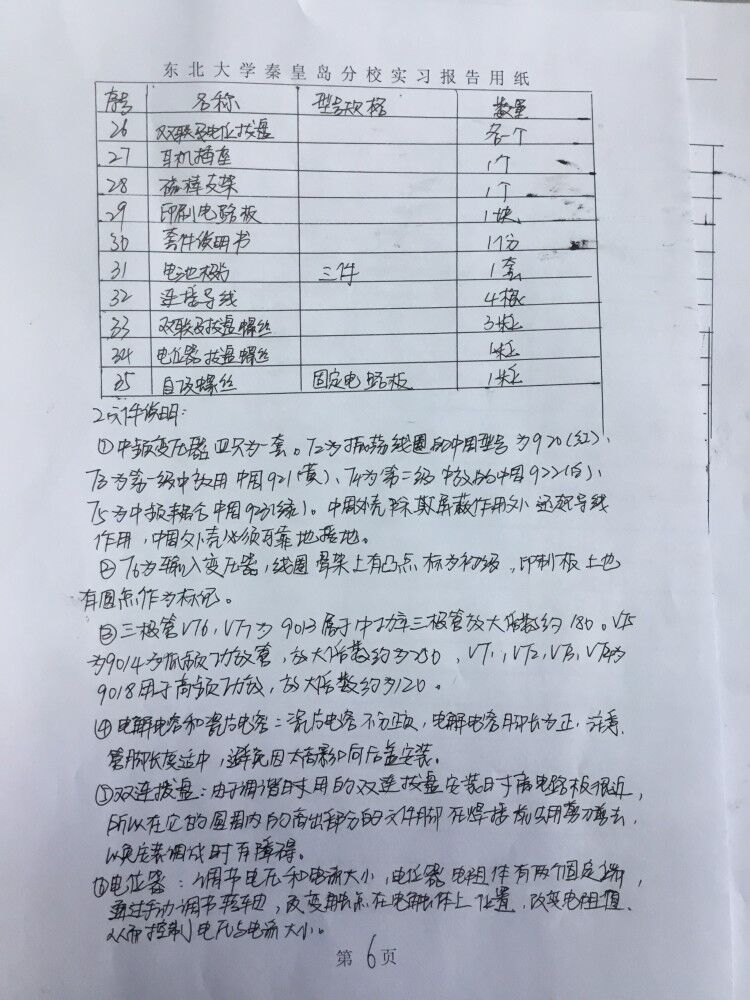 东北大学秦皇岛分校实习报告用纸
序号 名称 型号规格 数量
26 双联及电位拔盘 各一个
27 耳机插座 1个
28 磁棒支架 1个
29 印刷电路板 1块
30 套件说明书 1份
31 电池极片 三件 1套
32 连接导线 4根
33 双联及拔盘螺丝 3粒
34 电位器拔盘螺丝 1粒
35 自攻螺丝 固定电路板 1粒
2.元件说明:
①中频变压器四只为一套。T2为振荡线圈的中周型号为920(红)、
T3为第一级中放用中周921(黄)、T4为第二级中放的中周922(白)、
T5为中频耦合中周923(绿)。中周外壳除其屏蔽作用外还起导线
作用,中周外壳必须可靠地接地。
②T6为输入变压器,线圈骨架上有凸点标为初级,印制板上也
有圆点作为标记。
③三极管VT6,VT7为9013属于中功率三极管放大倍数约180。VT5
为9014为低频功放管,放大倍数约为280,VT1,VT2,VT3,VT4为
9018用于高频功放,放大倍数约为120。
④电解电容和瓷片电容:瓷片电容不分正反,电解电容脚长为正,注意
管脚长度适中,避免因太高影响后盖安装。
⑤双连拔盘:由于调谐时用的双连拔盘安装时离电路板很近,
所以在它的圆周内的高出部分的元件脚在焊接前用剪刀剪去,
以免安装调试时有障碍。
⑥电位器:调节电压和电流大小,电位器电阻体有两个固定端,
通过手动调节转轴,改变触点在电阻体上位置,改变电阻值,
从而控制电压与电流大小。
第6页